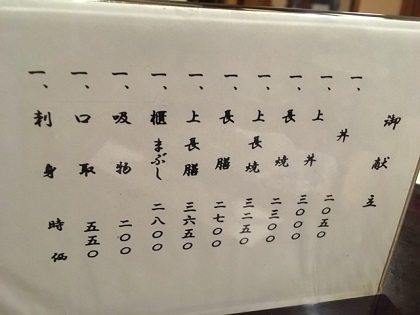 御献立
一、丼 二〇五〇
一、上丼 三〇〇〇
一、長焼 二三〇〇
一、上長焼 三二五〇
一、長膳 二七〇〇
一、上長膳 三六五〇
一、櫃まぶし 二八〇〇
一、吸物 二〇〇
一、口取 五五〇
一、刺身 時価